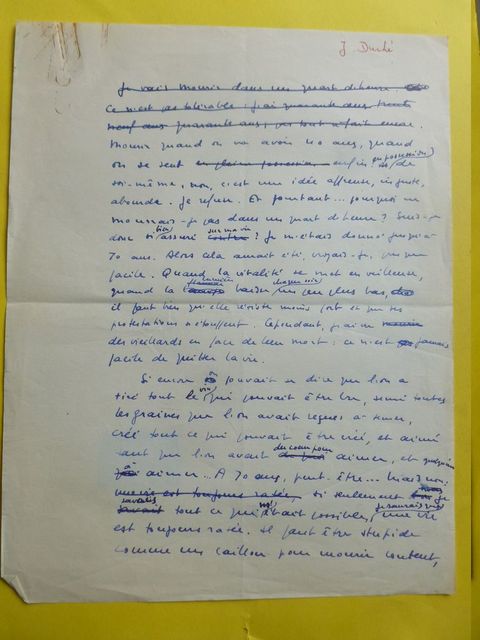 J. Duché
Je vais mourir dans un quart d'heure
Ce n'est pas tolérable : j'ai quarante ans trente
neuf ans quarante ans, pas tout à fait encore.
Mourir quand on va avoir 40 ans, quand
on se sent en pleine possession enfin en possession de
soi-même, non, c'est une idée affreuse, injuste,
absurde. Je refuse. Et pourtant... pourquoi ne
mourrais-je pas dans un quart d'heure ? Suis-je
donc si bien assuré sur ma vie contre ? Je m'étais donné jusqu'à
70 ans. Alors cela aurait été, croyais-je, presque
facile. Quand la vitalité se met en veilleuse,
quand la lumière flamme baisse chaque soir un peu plus bas,
il faut bien qu'elle résiste moins fort et que ses
protestations s'étouffent. Cependant, j'ai vu
des vieillards en face de leur mort : ce n'est pas jamais
facile de quitter la vie.
Si encore on pouvait se dire que l'on a
tiré tout le vin qui pouvait être bu, semé toutes
les graines que l'on avait reçues à semer,
créé tout ce qui pouvait être créé, et aimé
tant que l'on avait du cœur pour aimer, et quelqu'un
à aimer... A 70 ans, peut-être... mais non :
une vie est toujours ratée, si seulement je
savais tout ce qui m'était possible, je saurais que une vie
est toujours ratée. Il faut être stupide
comme un caillou pour mourir content,